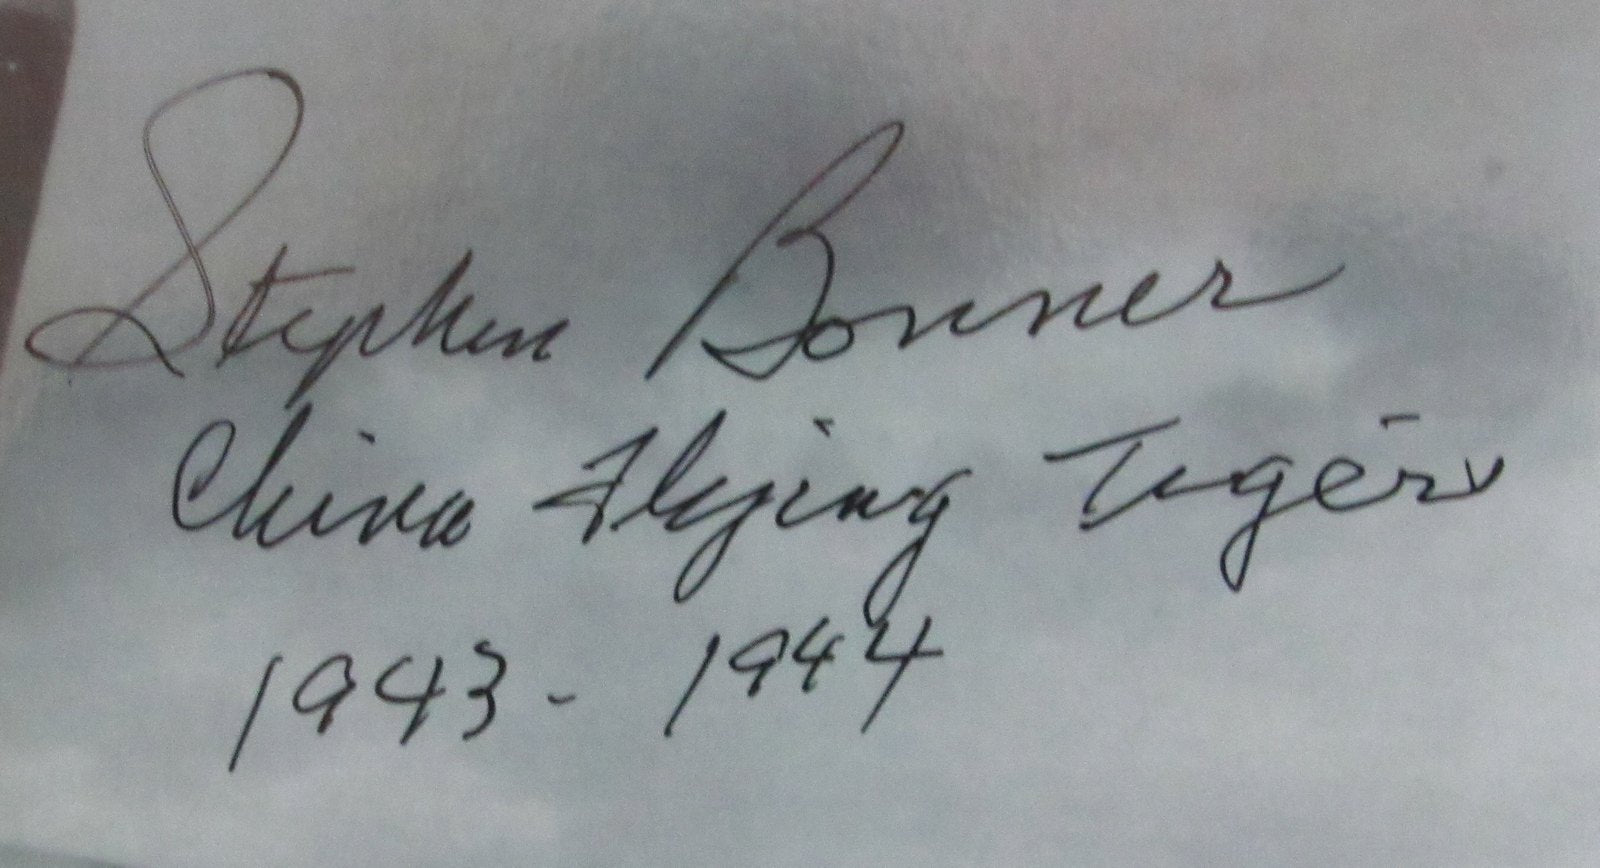 Stephen Bonner
China Flying Tigers
1943 - 1944